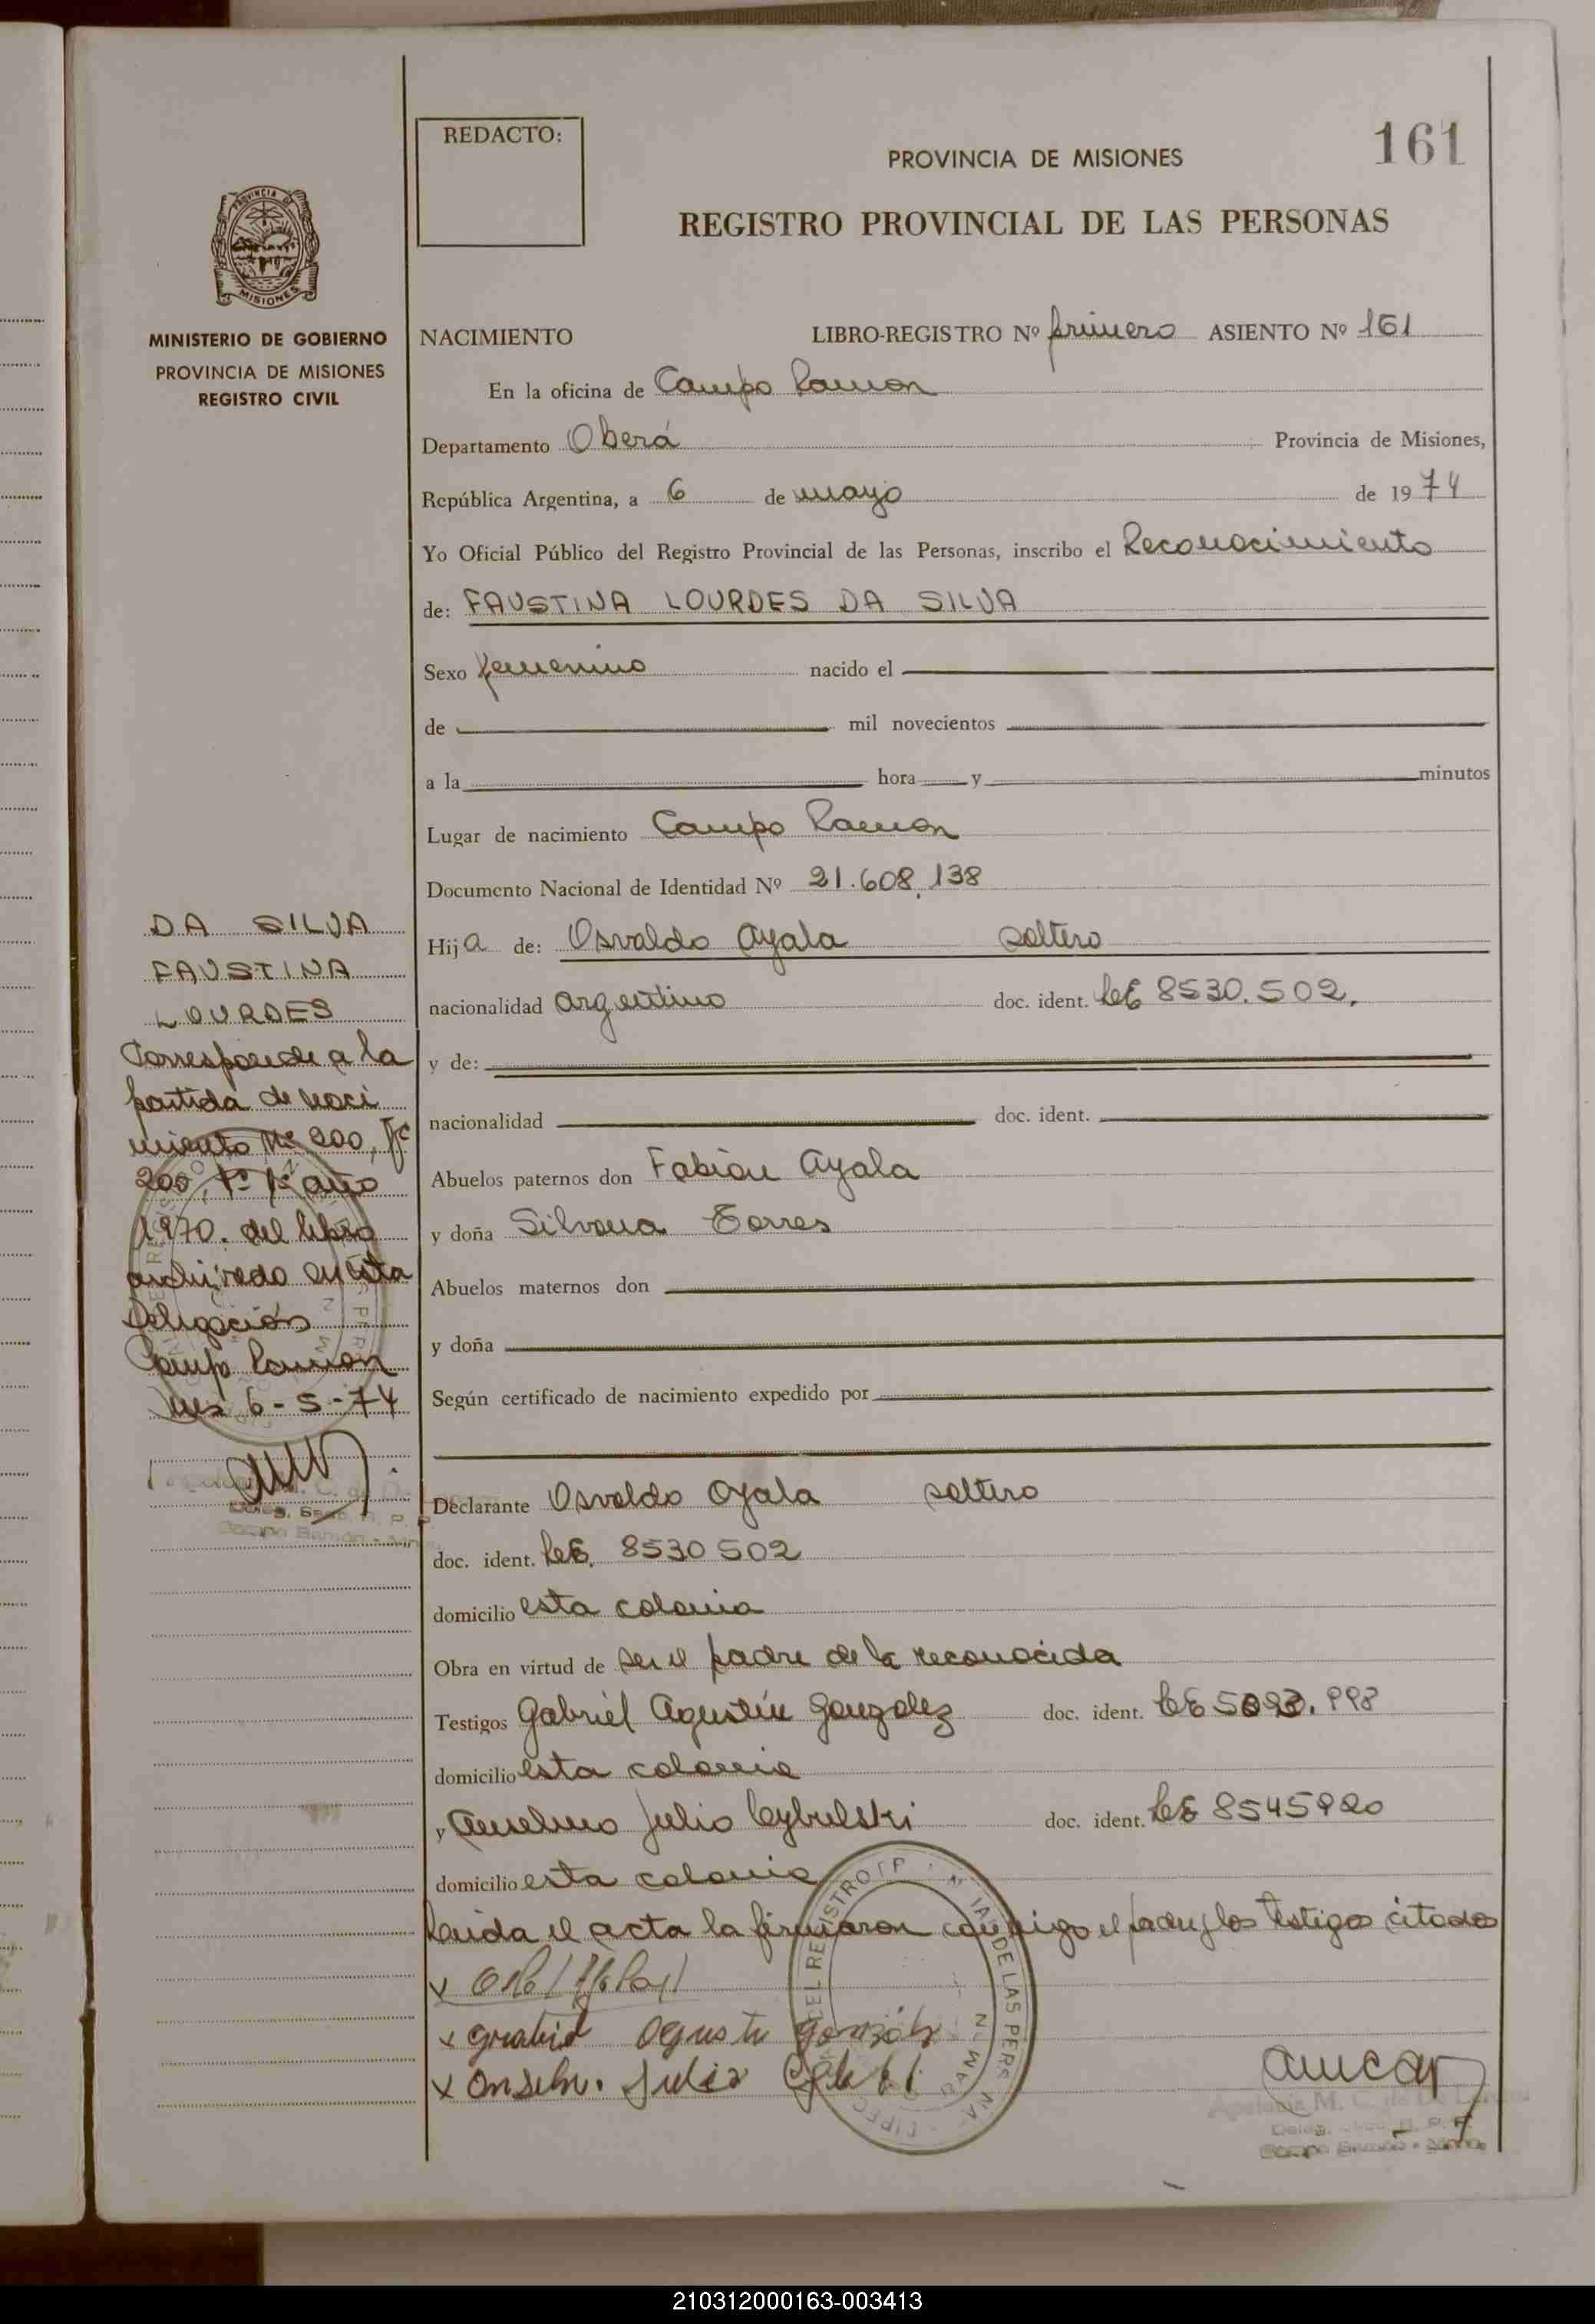 REDACTO:
161
PROVINCIA DE MISIONES
REGISTRO PROVINCIAL DE LAS PERSONAS
PROVINCIA DE
MISIONES
MINISTERIO DE GOBIERNO
PROVINCIA DE MISIONES
REGISTRO CIVIL
NACIMIENTO LIBRO-REGISTRO Nº primero ASIENTO Nº 161
En la oficina de Campo Ramon
Departamento Oberá Provincia de Misiones,
República Argentina, a 6 de mayo de 1974
Yo Oficial Público del Registro Provincial de las Personas, inscribo el Reconocimiento
de: FAUSTINA LOURDES DA SILVA
Sexo femenino nacido el
de mil novecientos
a la hora y minutos
Lugar de nacimiento Campo Ramon
Documento Nacional de Identidad Nº 21.608.138
Hija de: Osvaldo Ayala soltero
nacionalidad argentino doc. ident. LE 8530.502.
y de:
nacionalidad doc. ident.
Abuelos paternos don Fabian Ayala
y doña Silvana Torres
Abuelos maternos don
y doña
Según certificado de nacimiento expedido por
Declarante Osvaldo Ayala soltero
doc. ident. LE. 8530502
domicilio esta colonia
Obra en virtud de ser el padre de la reconocida
Testigos Gabriel Agustin Gonzalez doc. ident. LE
domicilio esta colonia
y Anselmo Julio Cybulski doc. ident. LE 8545920
domicilio esta colonia
Leida el acta la firmaron conmigo el padre y los testigos citados
x
x Agusti Gonzalez
x Anselm. Julio
DA SILVA
FAUSTINA
LOURDES
Corresponde a la
partida de naci
miento Nº 200, Fº
200, Tº 1º año
1970. del libro
archivado en esta
Delegación
Campo Ramon
Mnes 6-5-74
Campo Ramón - Mnes
Apolonia M. C. de De
Deleg. R. P. P.
Campo Ramón - Mnes
DEL REGISTRO P DE LAS PERS
210312000163-003413